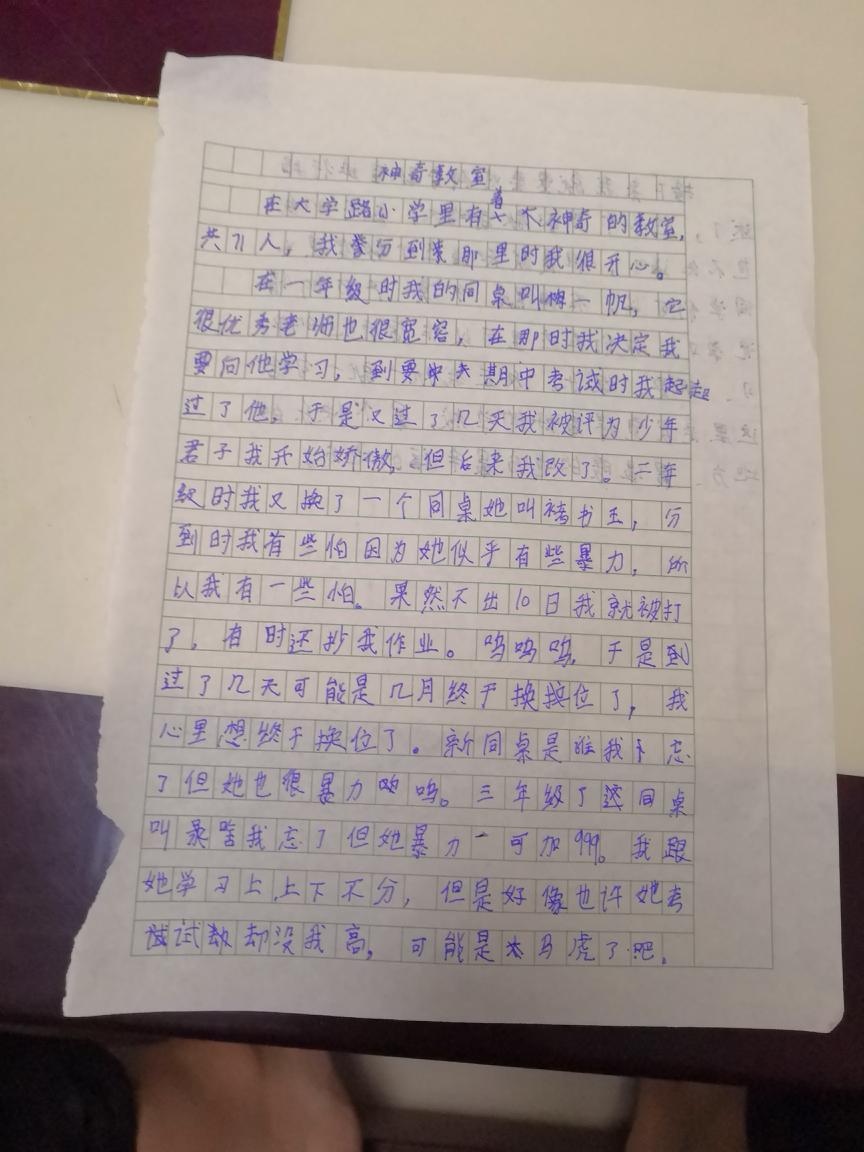 神奇教室
在大学路小学里有着一大神奇的教室,
共71人，我分到来那里时我很开心。
在一年级时我的同桌叫一帆，它
很优秀老师也很宽容，在那时我决定我
要向他学习，到要期中考试时我超
过了他，于是又过了几天我被评为少年
君子我开始娇傲，但后来我改了。二年
级时我又换了一个同桌她叫书玉，分
到时我有些怕因为她似乎有些暴力，所
以我有一些怕。果然不出10日我就被打
了，有时还抄我作业。呜呜呜，于是到
过了几天可能是几月终于换换位了，我
心里想终于换位了。新同桌是谁我卜忘
了但她也很暴力呜呜。三年级了这同桌
叫桑啥我忘了但她暴力一可加999。我跟
她学习上上下不分，但是好像也许她考
试试数却没我高，可能是太马虎了吧，